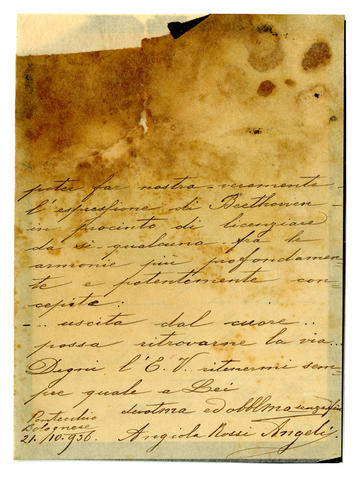 poter far nostra veramente
l'espressione di Beethowen
in procinto di licenziare
da sè qualcuna fra le
armonie più profondamen-
te e potentemente con-
cepite:
... uscita dal cuore...
possa ritrovarne la via...
Degni l'E. V. ritenermi sem-
pre quale a Lei
devotma ed obblma senza fin
Pontecchio
Bolognese
21./10.936. Angiola Rossi Angeli